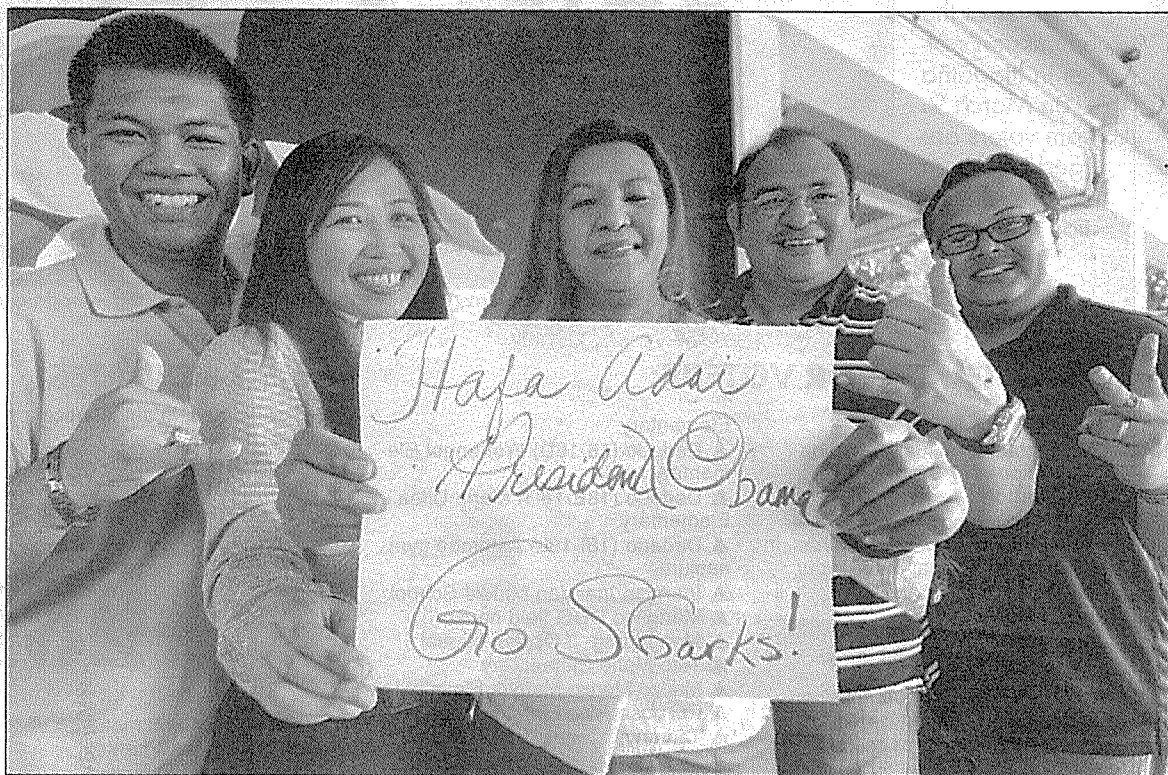 Hafa Adai
President Obama
Go Sharks!